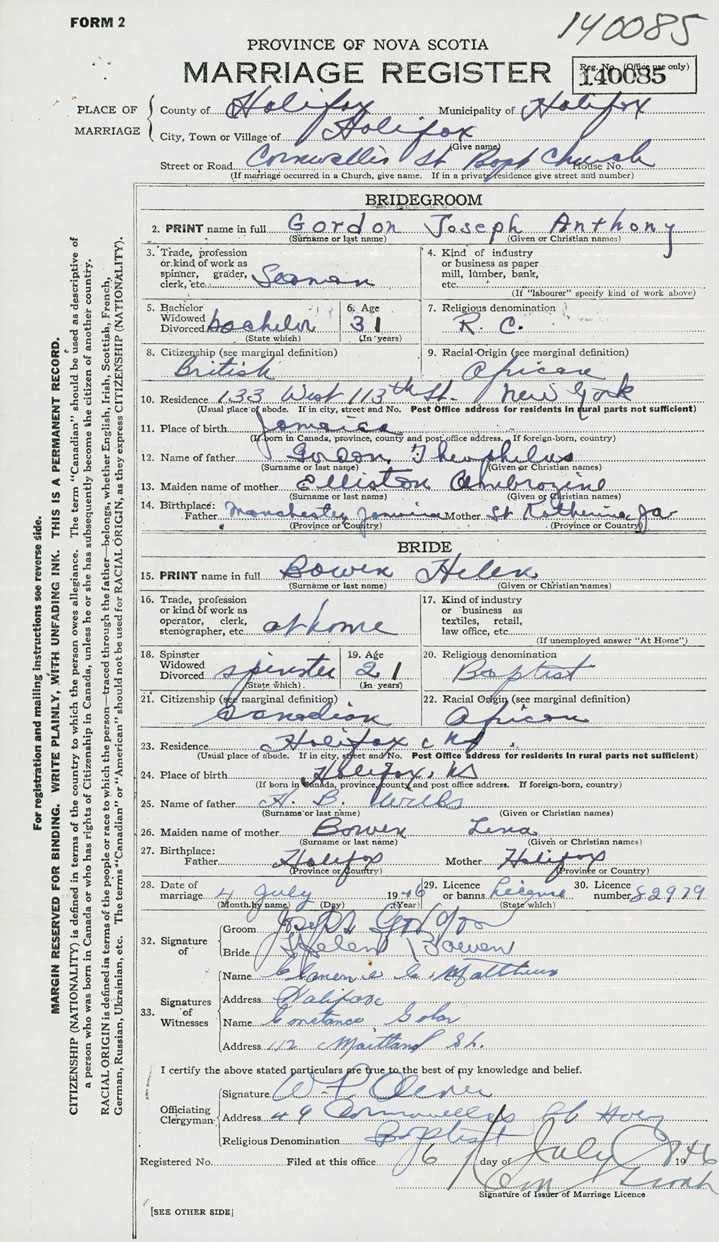 FORM 2
140085
PROVINCE OF NOVA SCOTIA
MARRIAGE REGISTER
Reg. No. (Office use only)
140085
PLACE OF MARRIAGE
County of Halifax Municipality of Halifax
City, Town or Village of Halifax
(Give name)
Street or Road Cornwallis St Bapt Church House No.
(If marriage occurred in a Church, give name. If in a private residence give street and number)
BRIDEGROOM
2. PRINT name in full Gordon Joseph Anthony
(Surname or last name) (Given or Christian names)
3. Trade, profession or kind of work as spinner, grader, clerk, etc. Seaman
4. Kind of industry or business as paper mill, lumber, bank, etc.
(If "labourer" specify kind of work above)
5. Bachelor Widowed Divorced bachelor
(State which)
6. Age 31
(In years)
7. Religious denomination R. C.
8. Citizenship (see marginal definition) British
9. Racial Origin (see marginal definition) African
10. Residence 133 West 113th St. New York
(Usual place of abode. If in city, street and No. Post Office address for residents in rural parts not sufficient)
11. Place of birth Jamaica
(If born in Canada, province, county and post office address. If foreign-born, country)
12. Name of father Gordon Theophilus
(Surname or last name) (Given or Christian names)
13. Maiden name of mother Elliston Ambrozine
(Surname or last name) (Given or Christian names)
14. Birthplace: Father Manchester Jamaica Mother St Katherine, Ja
(Province or Country) (Province or Country)
BRIDE
15. PRINT name in full Bowen Helen
(Surname or last name) (Given or Christian names)
16. Trade, profession or kind of work as operator, clerk, stenographer, etc. at home
17. Kind of industry or business as textiles, retail, law office, etc.
(If unemployed answer "At Home")
18. Spinster Widowed Divorced spinster
(State which)
19. Age 21
(In years)
20. Religious denomination Baptist
21. Citizenship (see marginal definition) Canadian
22. Racial Origin (see marginal definition) African
23. Residence Halifax NS.
(Usual place of abode. If in city, street and No. Post Office address for residents in rural parts not sufficient)
24. Place of birth Halifax, NS
(If born in Canada, province, county and post office address. If foreign-born, country)
25. Name of father A. B. Wills
(Surname or last name) (Given or Christian names)
26. Maiden name of mother Bowen Lena
(Surname or last name) (Given or Christian names)
27. Birthplace: Father Halifax Mother Halifax
(Province or Country) (Province or Country)
28. Date of marriage 4 July 1946
(Month by name) (Day) (Year)
29. Licence or banns License
(State which)
30. Licence number 82979
32. Signature of
Groom Joseph Gordon
Bride Helen Bowen
33. Signatures of Witnesses
Name C. Matthews
Address Halifax
Name Constance
Address 112 Maitland St.
I certify the above stated particulars are true to the best of my knowledge and belief.
Officiating Clergyman
Signature W. P. Oliver
Address 49 Cornwallis St
Religious Denomination Baptist
Registered No. Filed at this office 6 day of July 1946
Signature of Issuer of Marriage Licence
[SEE OTHER SIDE]
For registration and mailing instructions see reverse side.
MARGIN RESERVED FOR BINDING. WRITE PLAINLY, WITH UNFADING INK. THIS IS A PERMANENT RECORD.
CITIZENSHIP (NATIONALITY) is defined in terms of the country to which the person owes allegiance. The term "Canadian" should be used as descriptive of
a person who was born in Canada or who has rights of Citizenship in Canada, unless he or she has subsequently become the citizen of another country.
RACIAL ORIGIN is defined in terms of the people or race to which the person—traced through the father—belongs, whether English, Irish, Scottish, French,
German, Russian, Ukrainian, etc. The terms "Canadian" or "American" should not be used for RACIAL ORIGIN, as they express CITIZENSHIP (NATIONALITY).